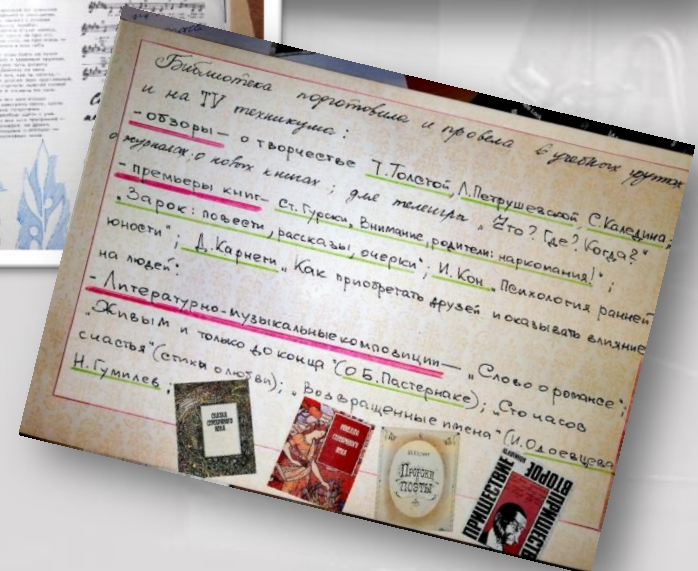 Библиотека подготовила и провела в учебных группах
и на TV техникума:
- обзоры – о творчестве Т.Толстой, Л.Петрушевской, С.Каледина;
о журналах; о новых книгах; для телеигры „Что? Где? Когда?"
- премьеры книг – Ст. Гурски „Внимание, родители: наркомания!";
„Зарок: повести, рассказы, очерки"; И. Кон „Психология ранней
юности"; Д. Карнеги „Как приобретать друзей и оказывать влияние
на людей".
- Литературно-музыкальные композиции – „Слово о романсе";
„Живым и только до конца" (о Б. Пастернаке); „Сто часов
счастья" (стихи о любви); „Возвращенные имена" (И. Одоевцева
Н. Гумилев
СКАЗКА СЕРЕБРЯНОГО ВЕКА
СЕРЕБРЯНОГО ВЕКА
Пророки
поэты
ВТОРОЕ
ПРИШЕСТВИЕ